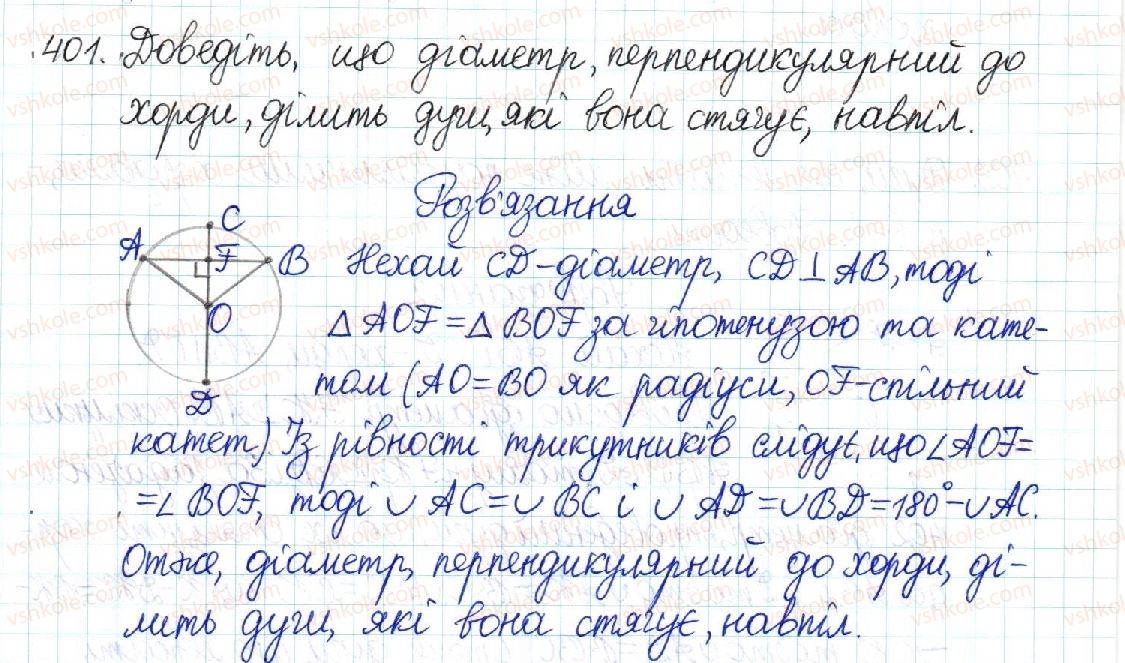 401. Доведіть, що діаметр, перпендикулярний до
хорди, ділить дуги, які вона стягує, навпіл.
Розв'язання
C
A F B
O
D
Нехай CD-діаметр, CD⊥AB, тоді
△AOF=△BOF за гіпотенузою та кате-
том (AO=BO як радіуси, OF-спільний
катет). Із рівності трикутників слідує, що ∠AOF=
=∠BOF, тоді ∪AC=∪BC і ∪AD=∪BD=180°-∪AC.
Отже, діаметр, перпендикулярний до хорди, ді-
лить дуги, які вона стягує, навпіл.